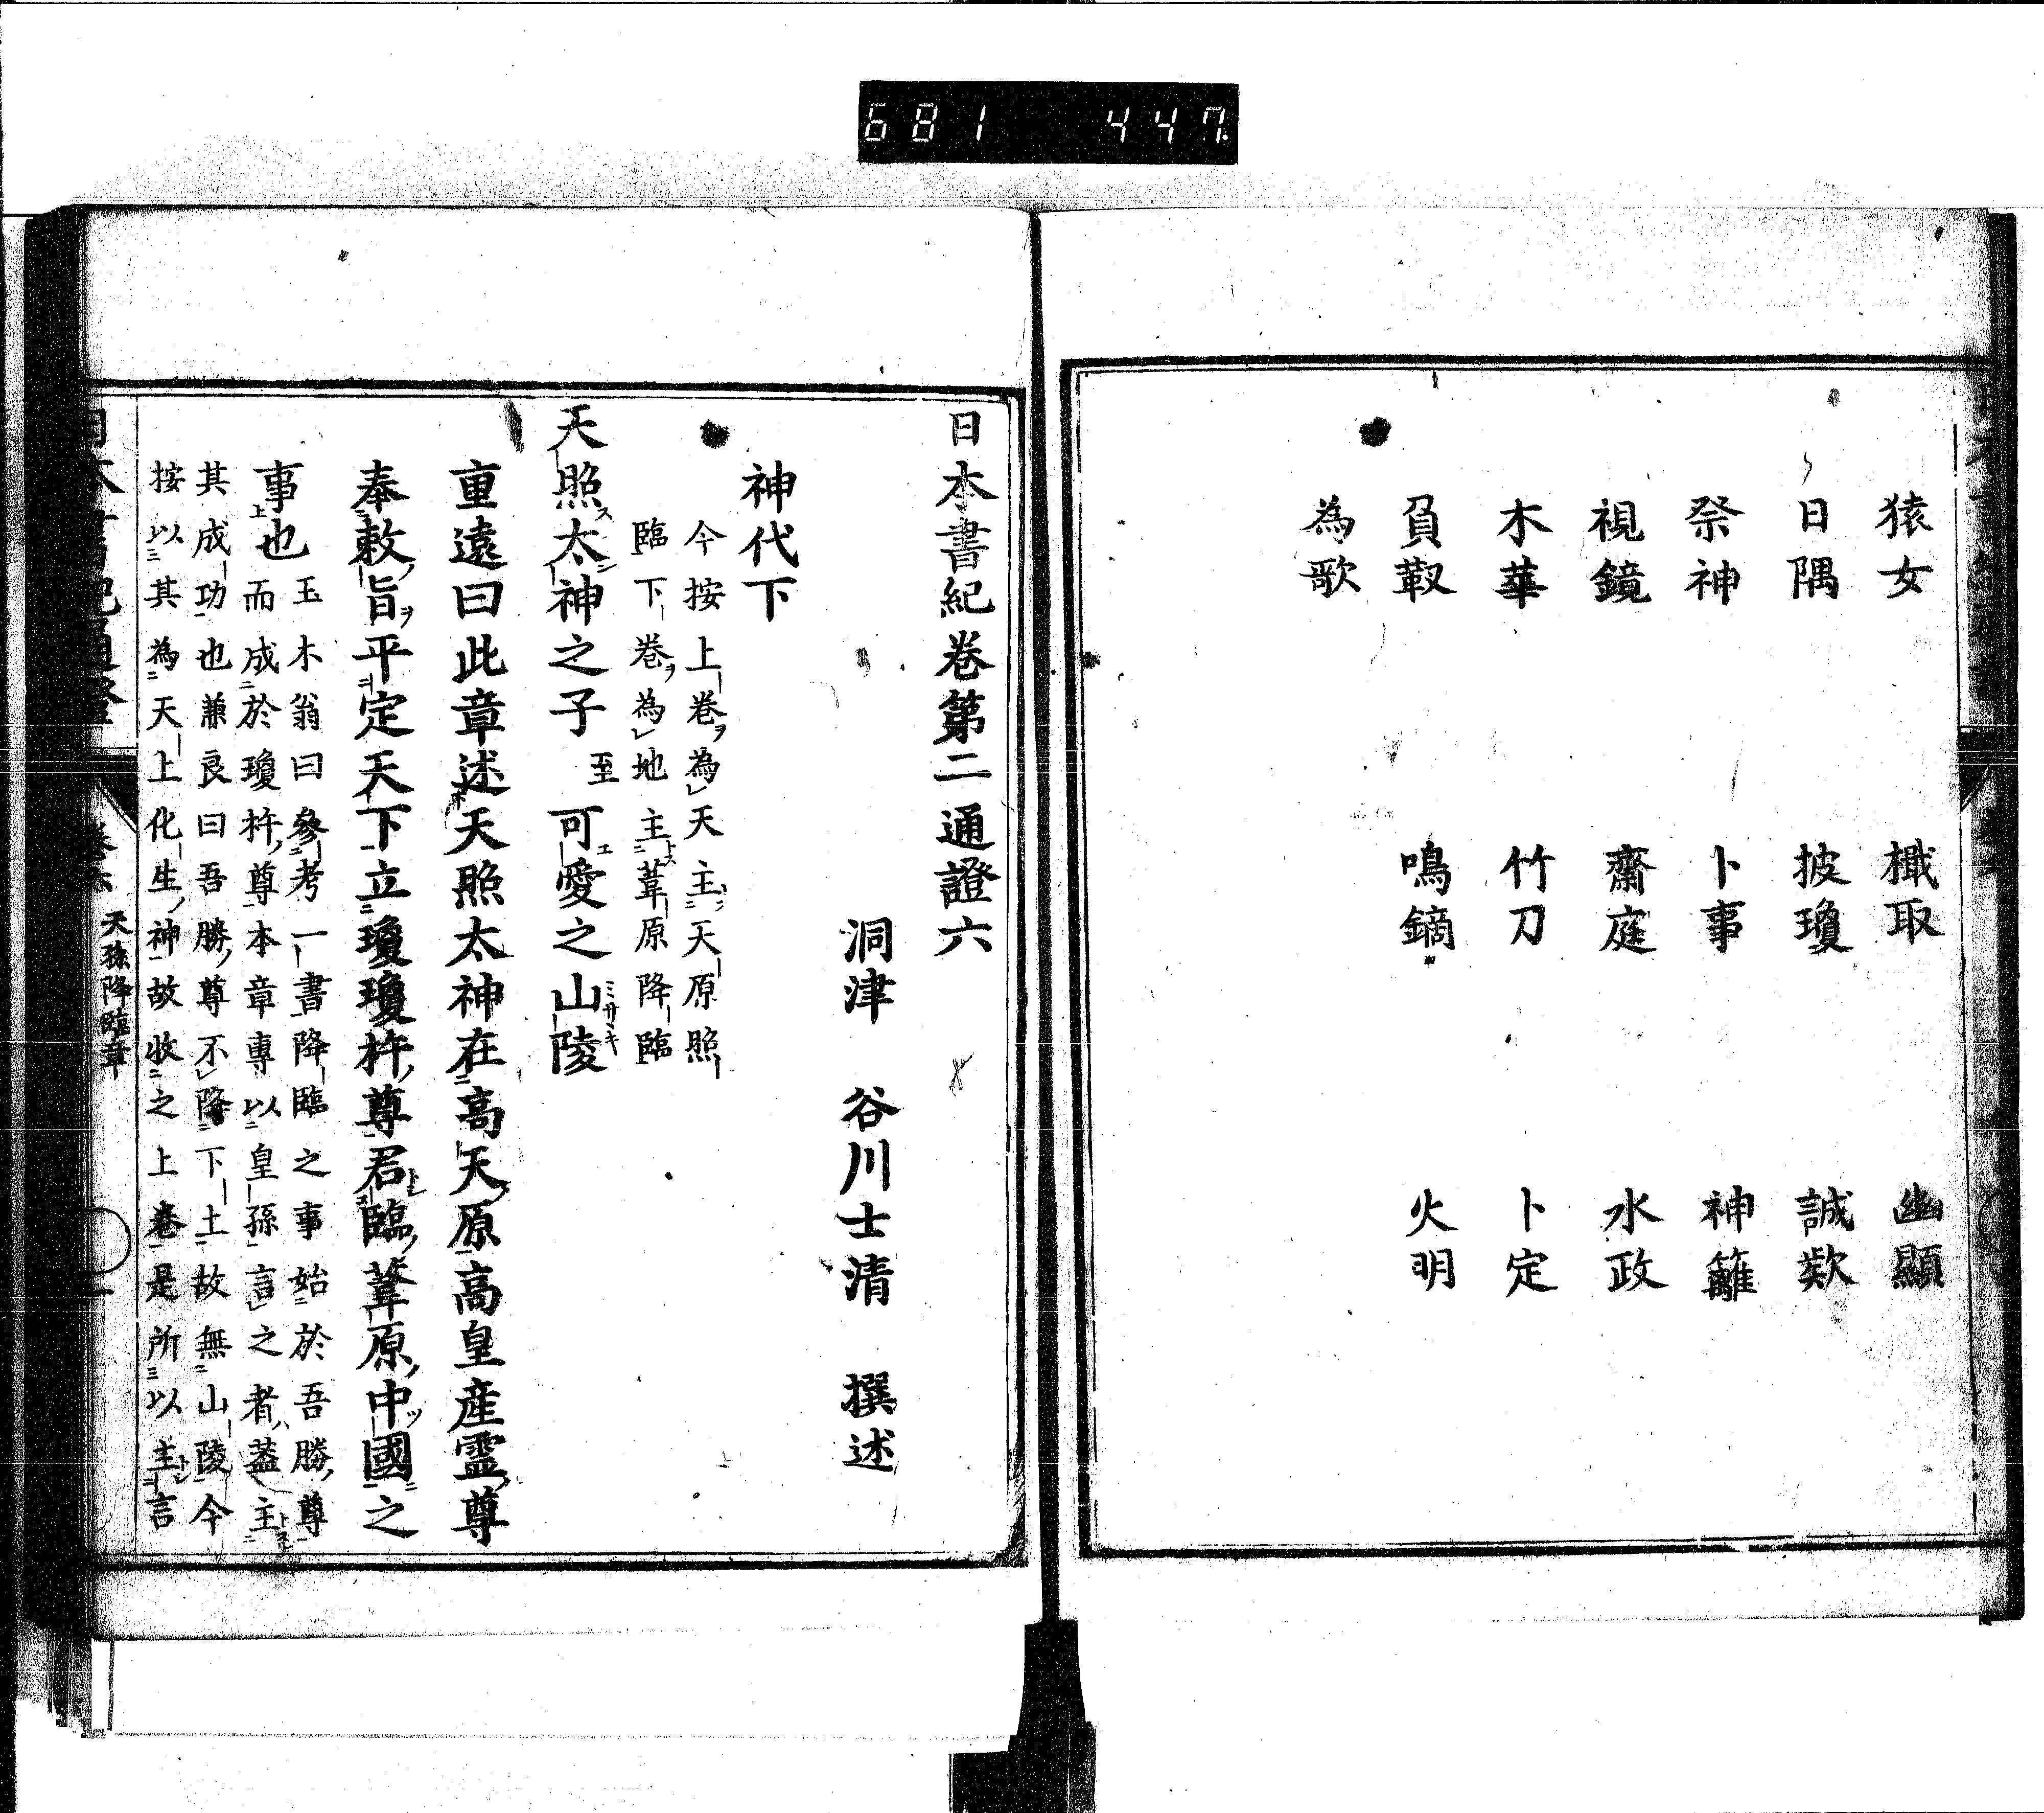 681 447
猿女 檝取 幽顯
日隅 披瓊 誠歎
祭神 卜事 神籬
視鏡 齋庭 水政
木華 竹刀 卜定
負靫 鳴鏑 火明
為歌
日本書紀卷第二通證六
洞津 谷川士清 撰述
神代下
今按上卷為天主天原照
臨下卷為地主葦原降臨
天照太神之子至可愛之山陵
重遠曰此章述天照太神在高天原高皇産霊尊
奉敕旨平定天下立瓊瓊杵尊君臨葦原中國之
事也
玉木翁曰參考一書降臨之事始於吾勝尊
而成於瓊杵尊本章專以皇孫言之者蓋主
其成功也兼良曰吾勝尊不降下土故無山陵今
按以其為天上化生神故收之上卷是所以主言
日本書紀通證 卷六 天孫降臨章 一